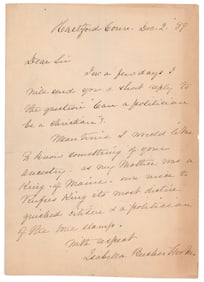 Hartford Conn. Dec. 2 '89
Dear Sir
In a few days I
will send you a short reply to
the question "Can a politician
be a christian"?
Meantime I would like
to know something of your
ancestry - as my Mother was a
King of Maine - own niece to
Rufus King its most distin
guished citizen & a politician
of the stamp.
With respect
Isabella Beecher Hooker